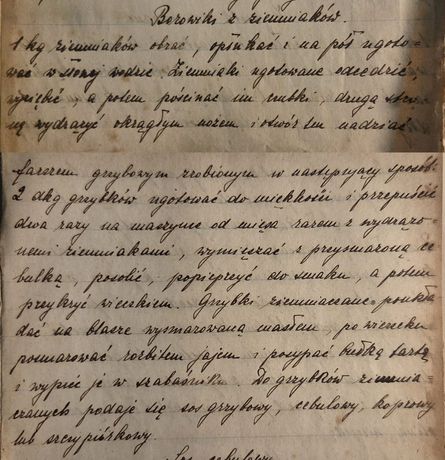 Borowiki z ziemniaków.
1 kg ziemniaków obrać, opłukać i na pół ugoto-
wać w słonej wodzie. Ziemniaki ugotowane odcedzić,
wyziębić, a potem pościnać im czubki, drugą stro-
nę wydrążyć okrągłym nożem i otwór ten nadziać
farszem grzybowym zrobionym w następujący sposób.
2 dkg grzybków ugotować do miękkości i przepuścić
dwa razy na maszynce od mięsa razem z wydrążo-
nemi ziemniakami, wymięszać z przysmażoną ce
bulką, posolić, popieprzyć do smaku, a potem
przykryć wieczkiem. Grzybki ziemniaczane poukła
dać na blasze wysmarowaną masłem, po wierzchu
posmarować rozbitem jajem i posypać bułką tartą
i wypiec je w szabaśniku. Do grzybków ziemnia-
czanych podaje się sos grzybowy, cebulowy, koprowy
lub szczypiórkowy.
Sos cebulowy